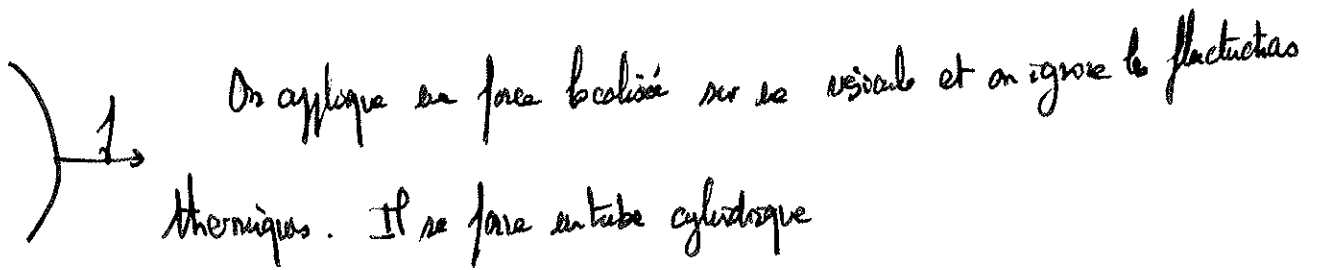 On applique une force localisée sur une vésicule et on ignore les fluctuations
thermiques. Il se forme un tube cylindrique